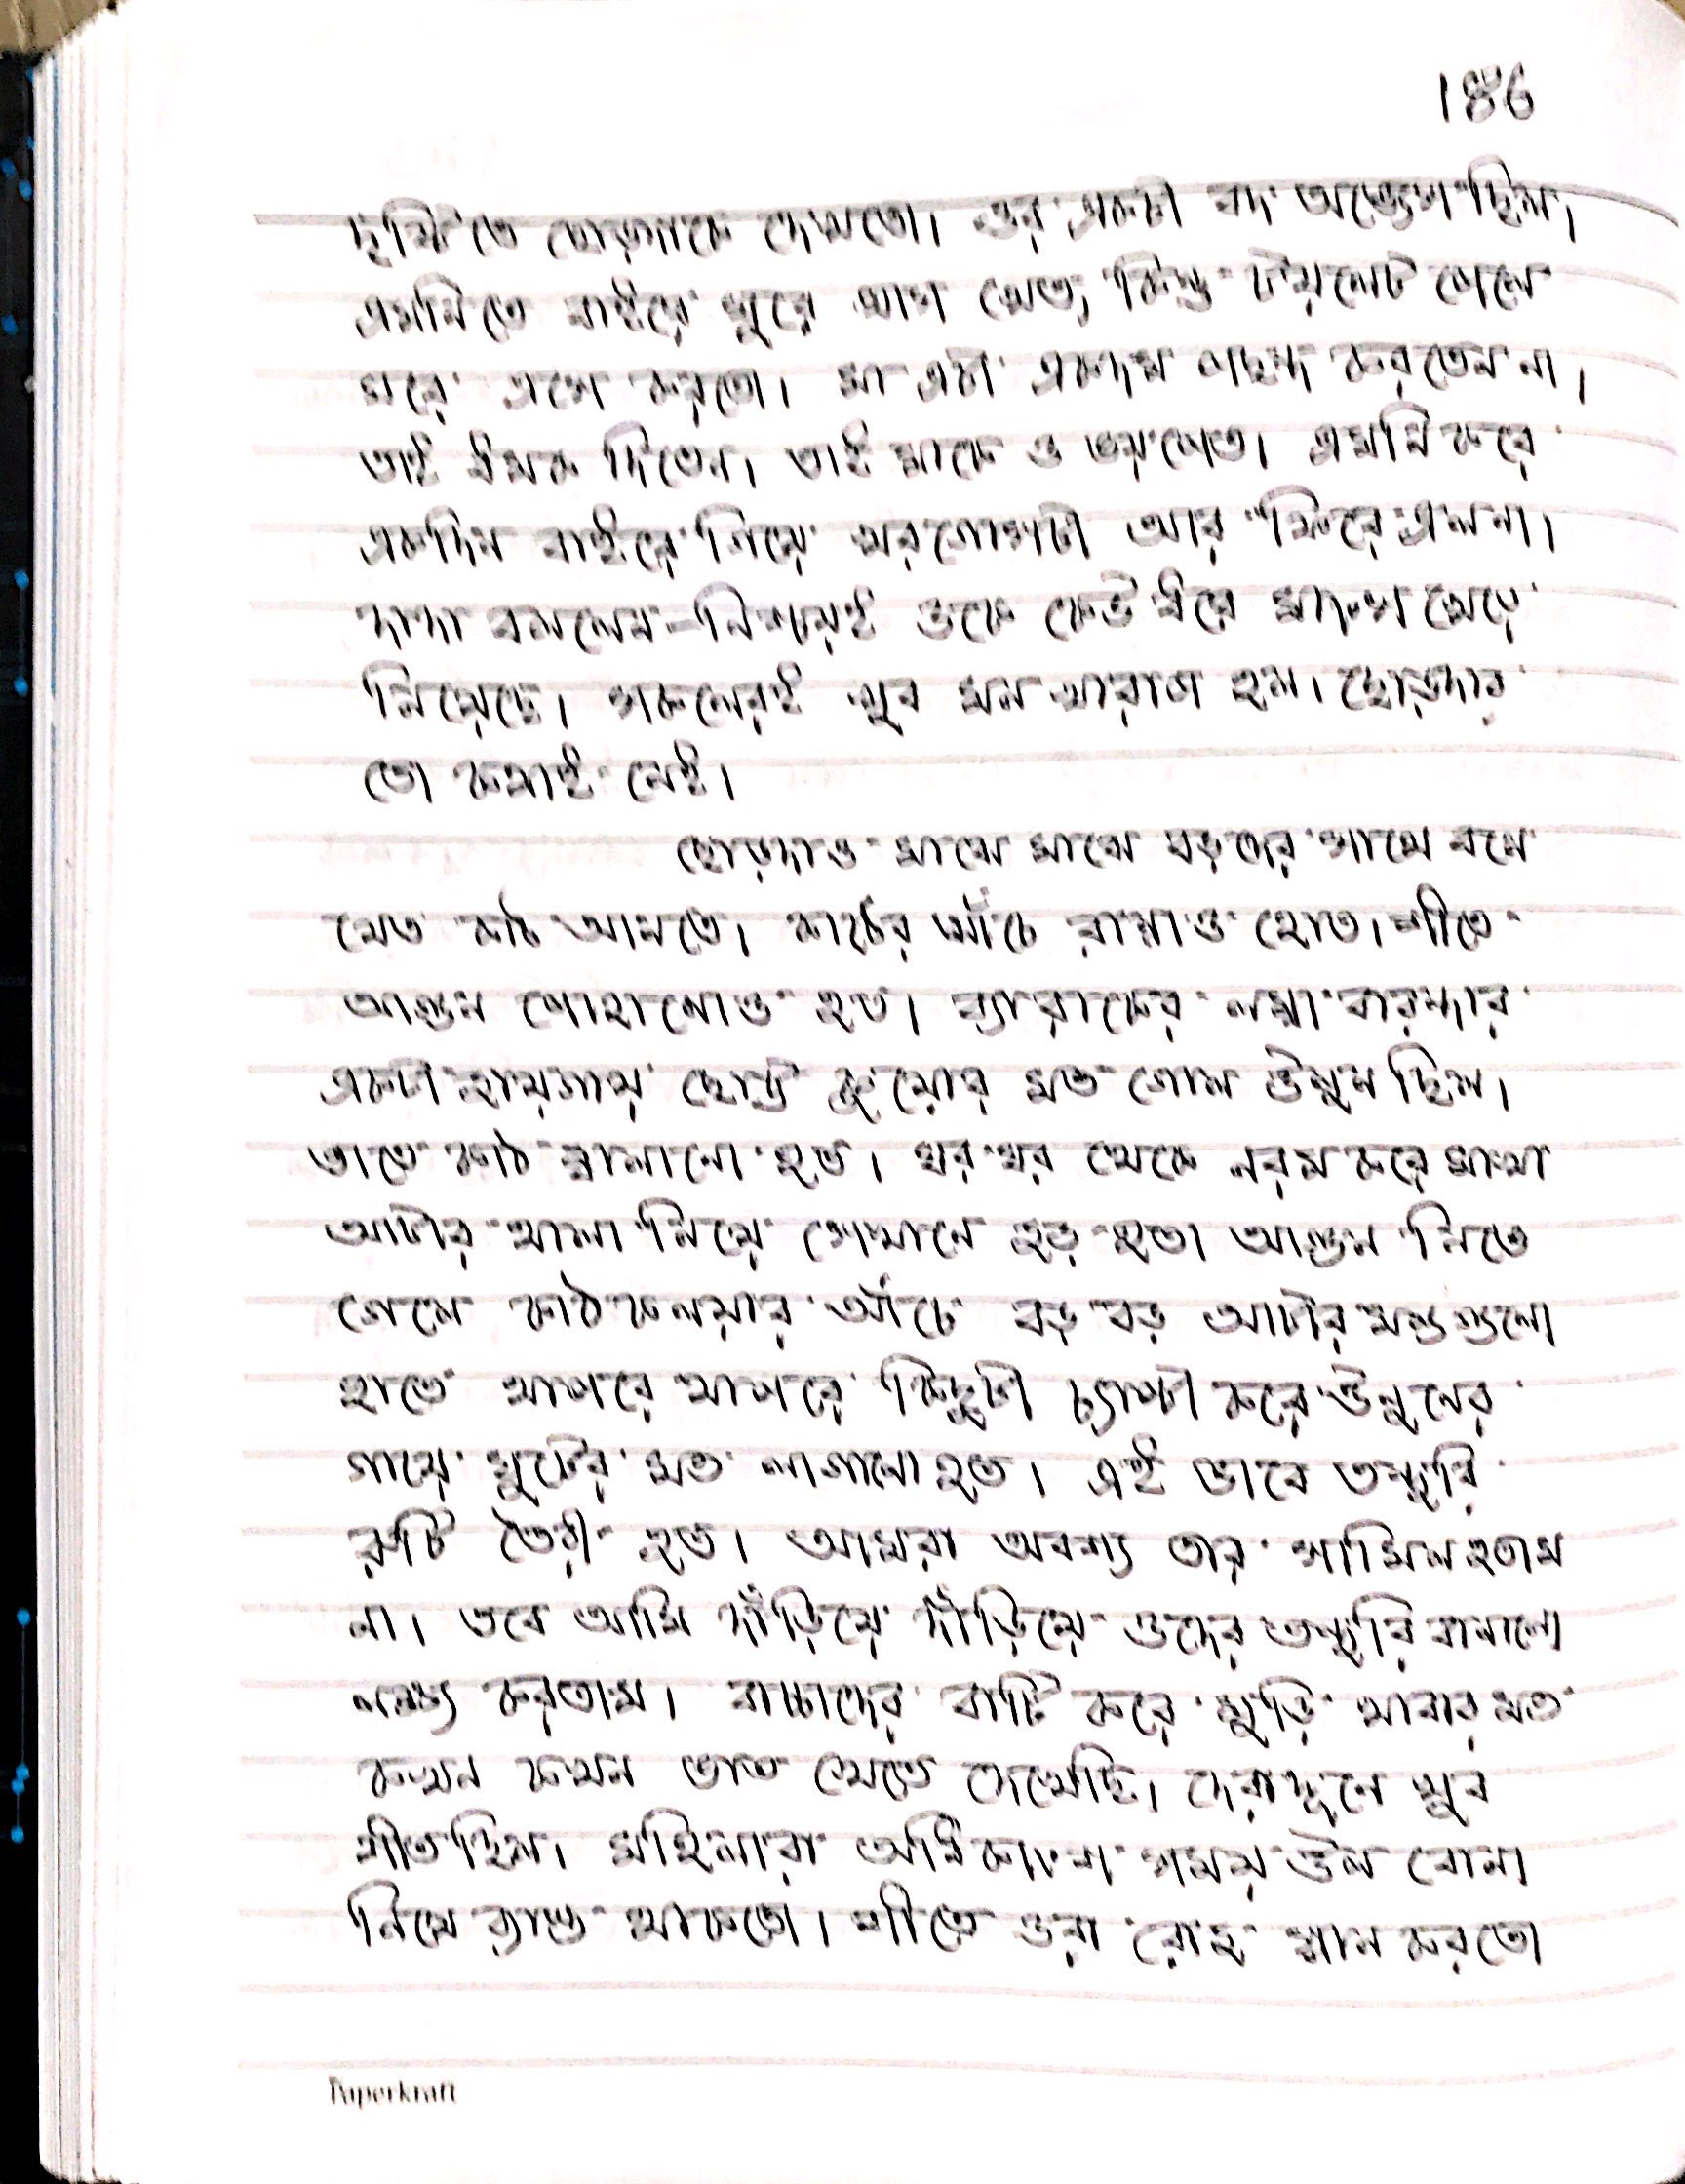 186
দৃষ্টিতে ছোড়দাকে দেখতো। ওর একটা বদ অভ্যেস ছিল।
এমনিতে বাইরে ঘুরে ঘাস খেত, কিন্তু টয়লেট পেলে
ঘরে এসে করতো। মা এটা একদম পছন্দ করতেন না।
তাই ধমক দিতেন। তাই মাকে ও ভয় পেত। এমনি করে
একদিন বাইরে গিয়ে খরগোসটা আর ফিরে এলনা।
দাদা বললেন – নিশ্চয়ই ওকে কেউ ধরে মাংস খেয়ে
নিয়েছে। সকলেরই খুব মন খারাপ হল। ছোড়দার
তো কথাই নেই।
ছোড়দাও মাঝে মাঝে বড়দার সাথে বনে
যেত কাঠ আনতে। কাঠের আঁচে রান্নাও হোত। শীতে
আগুন পোহানোও হত। ব্যারাকের লম্বা বারন্দার
একটা জায়গায় ছোট্ট কুয়োর মত গোল উনুন ছিল।
তাতে কাঠ জ্বালানো হত। ঘর ঘর থেকে নরম করে মাখা
আটার থালা নিয়ে সেখানে জড় হত। আগুন নিভে
গেলে কাঠ কয়লার আঁচে বড় বড় আটার মন্ডগুলো
হাতে থাপরে থাপরে কিছুটা চ্যাপ্টা করে উনুনের
গায়ে ঘুটের মত লাগানো হত। এই ভাবে তন্দুরি
রুটি তৈরী হত। আমরা অবশ্য তার সামিল হতাম
না। তবে আমি দাঁড়িয়ে দাঁড়িয়ে ওদের তন্দুরি বানানো
লক্ষ্য করতাম। বাচ্চাদের বাটি করে মুড়ি খাবার মত
কখন কখন ভাত খেতে দেখেছি। দেরাদুনে খুব
শীত ছিল। মহিলারা অধিকাংশ সময় উল বোনা
নিয়ে ব্যস্ত থাকতো। শীতে ওরা রোজ স্নান করতো
Paperkraft